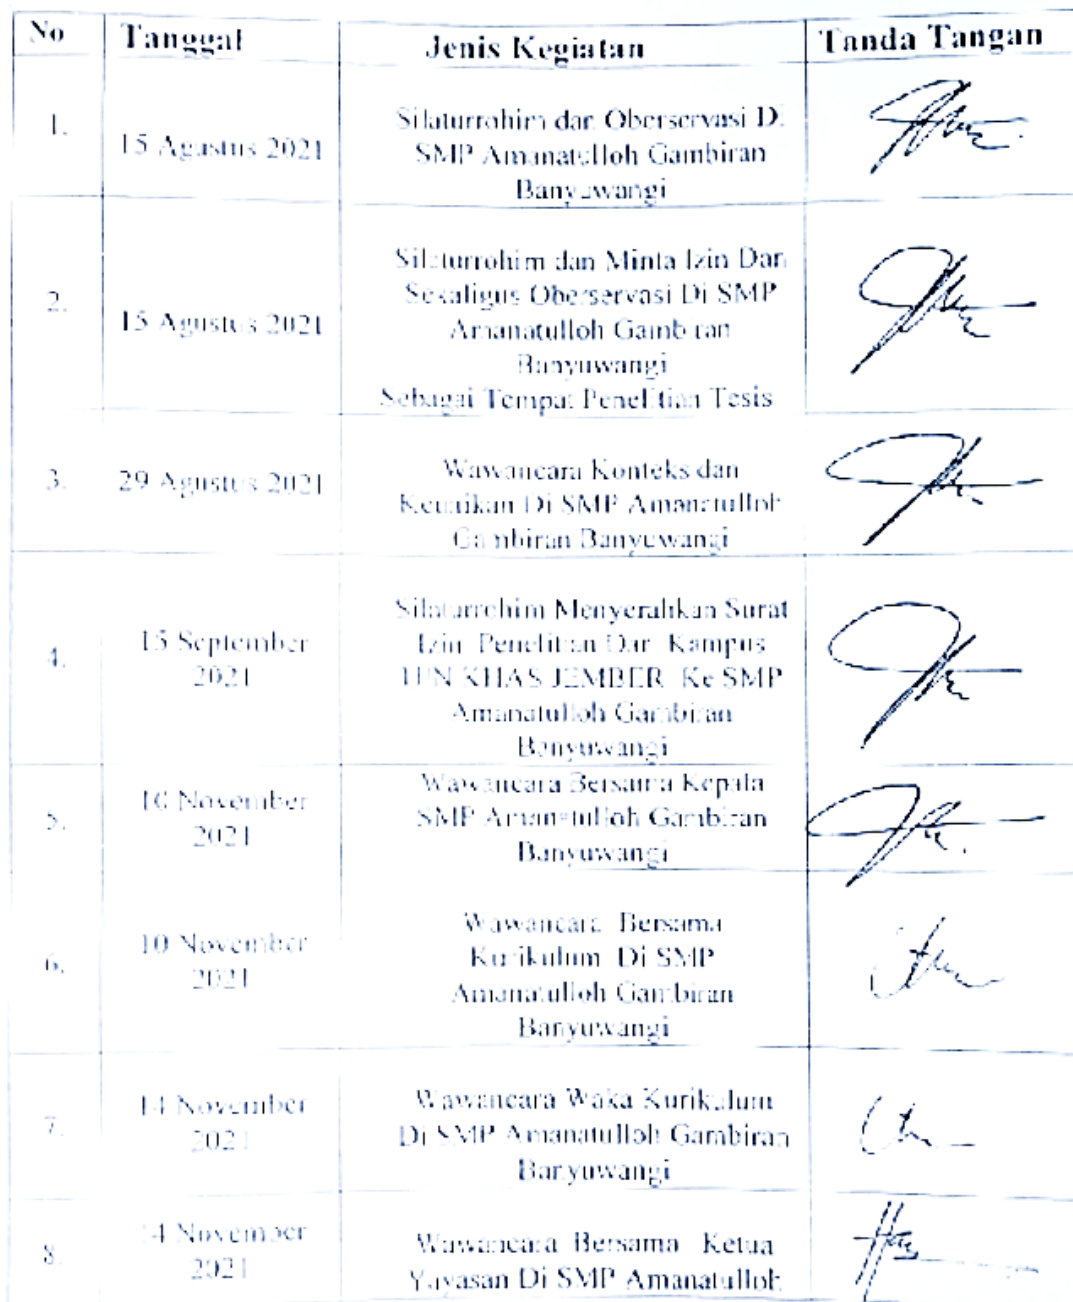 No Tanggal Jenis Kegiatan Tanda Tangan
1. 15 Agustus 2021
Silaturrohim dan Oberservasi Di
SMP Amanatulloh Gambiran
Banyuwangi
2. 15 Agustus 2021
Silaturrohim dan Minta Izin Dan
Sekaligus Oberservasi Di SMP
Amanatulloh Gambiran
Banyuwangi
Sebagai Tempat Penelitian Tesis
3. 29 Agustus 2021
Wawancara Konteks dan
Keunikan Di SMP Amanatulloh
Gambiran Banyuwangi
4. 15 September
2021
Silaturrohim Menyerahkan Surat
Izin Penelitian Dari Kampus
UIN KHAS JEMBER Ke SMP
Amanatulloh Gambiran
Banyuwangi
5. 10 November
2021
Wawancara Bersama Kepala
SMP Amanatulloh Gambiran
Banyuwangi
6. 10 November
2021
Wawancara Bersama
Kurikulum Di SMP
Amanatulloh Gambiran
Banyuwangi
7. 14 November
2021
Wawancara Waka Kurikulum
Di SMP Amanatulloh Gambiran
Banyuwangi
8. 14 November
2021
Wawancara Bersama Ketua
Yayasan Di SMP Amanatulloh